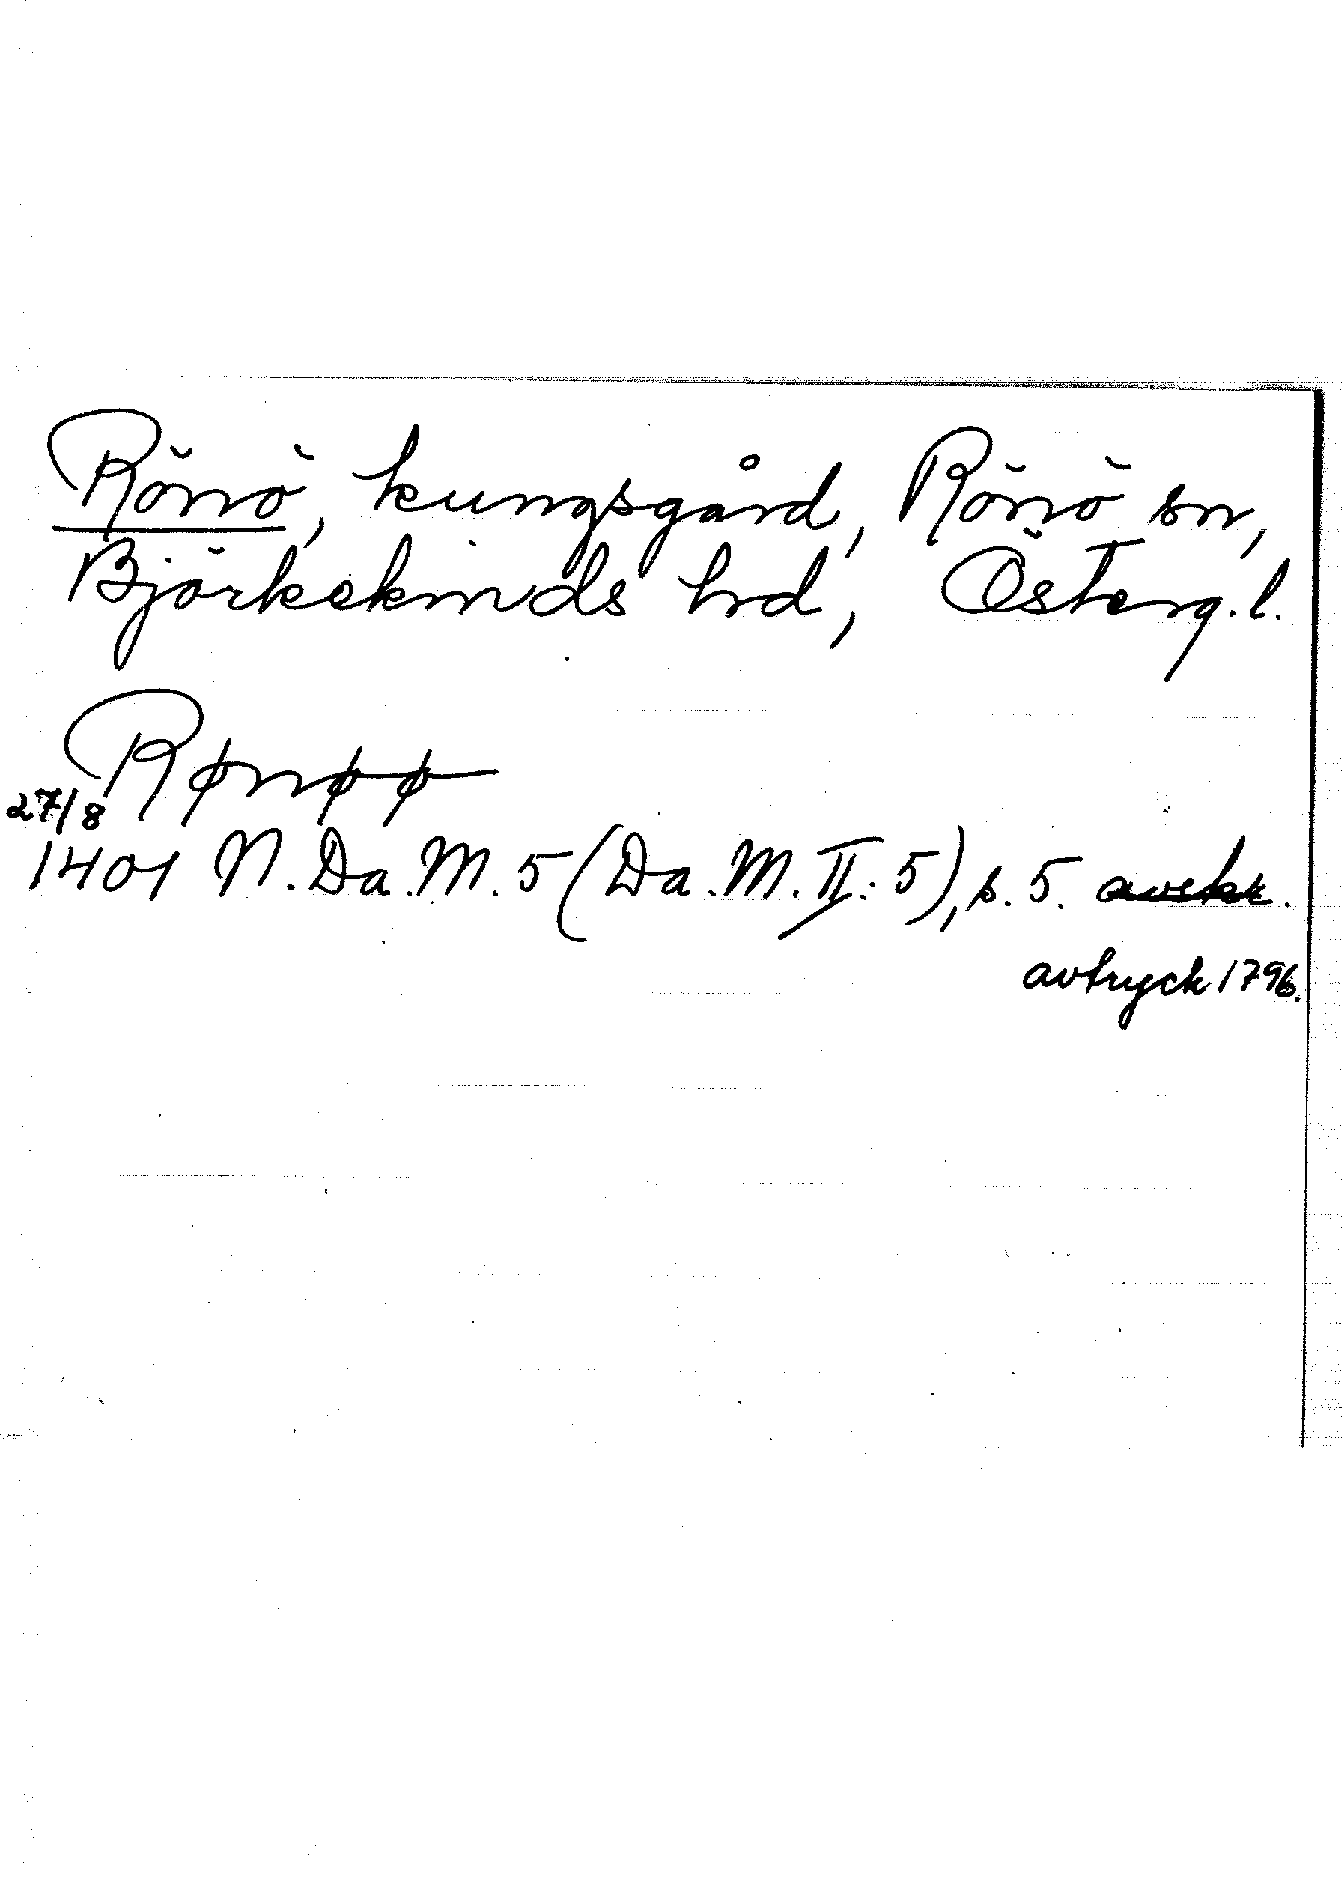 Rönö, kungsgård, Rönö sn,
Björkekinds hrd, Österg.l.
Rønøø
27/8
1401 N.Da.M.5 (Da.M.II:5), s.5.
avtryck 1796.